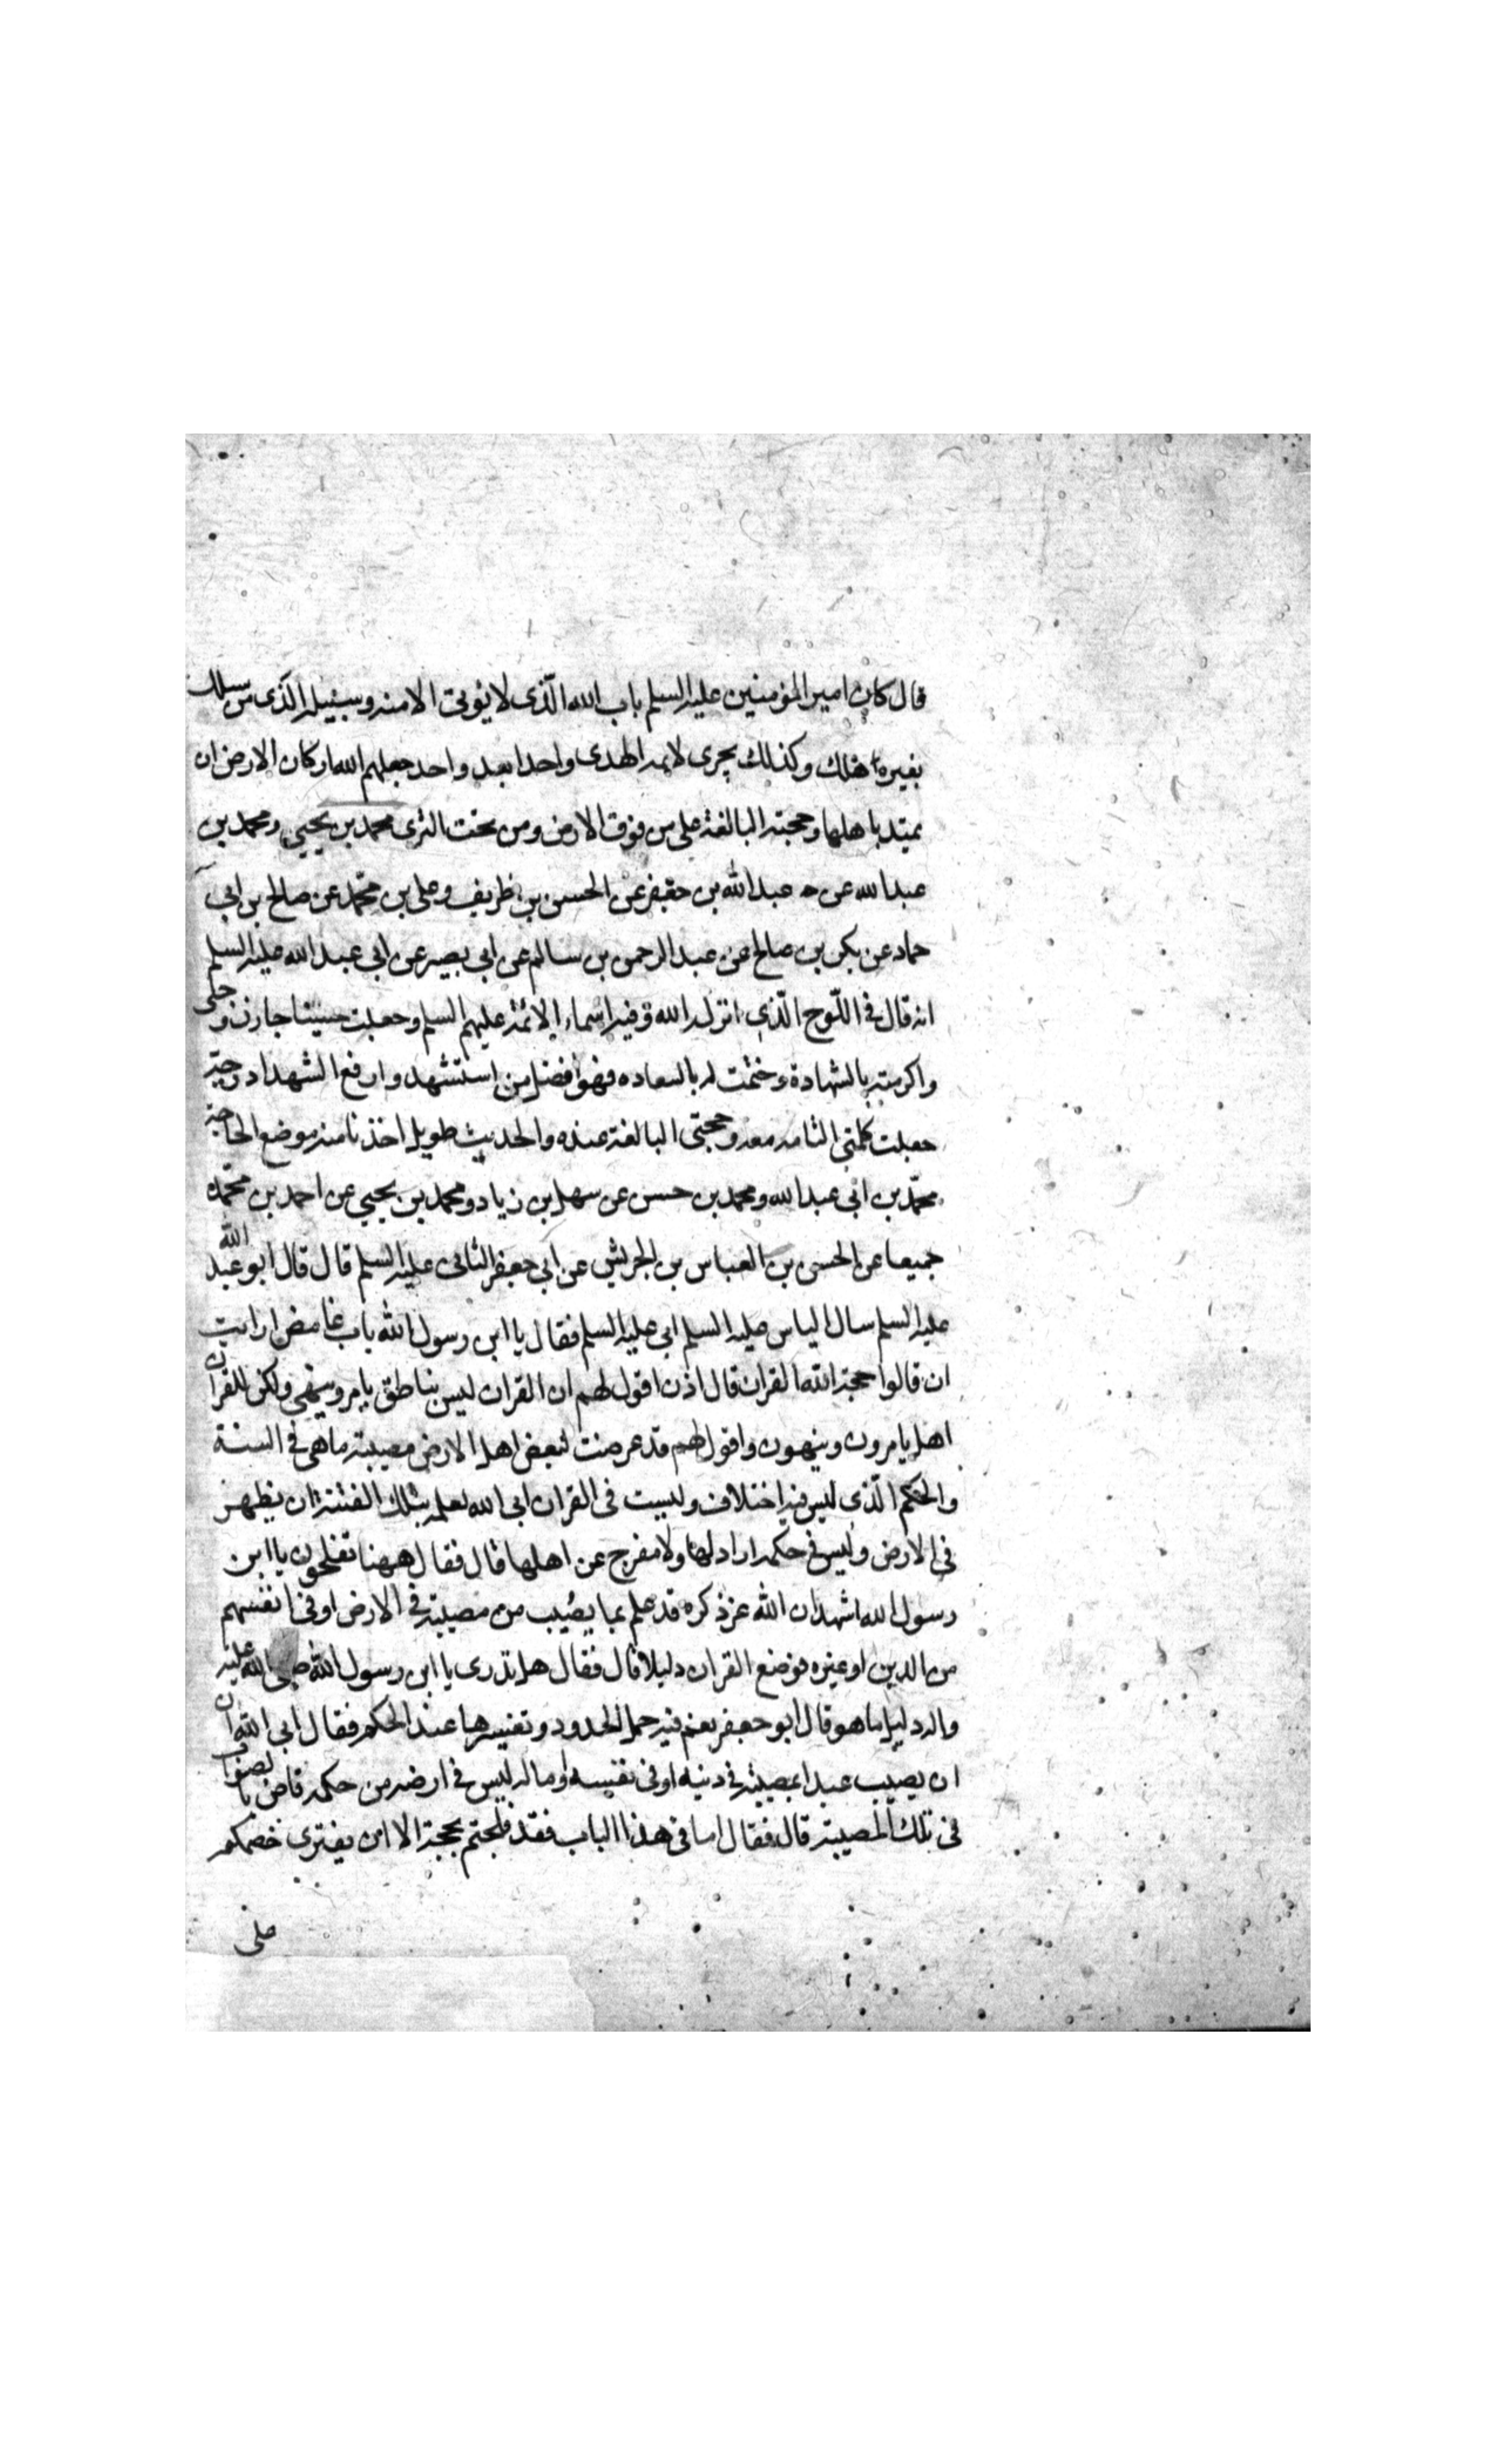 قال كان امير المؤمنين عليه السلم باب الله الّذى لا يؤتى الا منه وسبيله الّذى من سلك
بغيره هلك وكذلك يجرى لائمه الهدى واحدا بعد واحد جعلهم الله اركان الارض ان
تميد باهلها وحجته البالغة على من فوق الارض ومن تحت الثرى محمد بن يحيى ومحمد بن
عبد الله عن عبد الله بن جعفر عن الحسن بن ظريف وعلى بن محمّد عن صالح بن ابى
حماد عن بكر بن صالح عن عبد الرحمن بن سالم عن ابى بصير عن ابى عبد الله عليه السلم
انه قال فى اللّوح الّذى انزله الله وفيه اسماء الائمة عليهم السلم وجعلت حسينا خازن وحيى
واكرمته بالشهادة وختمت له بالسعاده فهو افضل من استشهد وارفع الشهدا درجة
جعلت كلمتى التامه معه وحجتى البالغة عنده والحديث طويل اخذنا منه موضع الحاجة
محمّد بن ابى عبد الله ومحمد بن حسن عن سهل بن زياد ومحمد بن يحيى عن احمد بن محمّد
جميعا عن الحسن بن العباس بن الجريش عن ابى جعفر الثانى عليه السلم قال قال ابو عبد الله
عليه السلم سال الياس عليه السلم ابى عليه السلم فقال يا ابن رسول الله باب غامض ارايت
ان قالوا حجة الله القران قال اذن اقول لهم ان القران ليس بناطق يامر وينهى ولكن للقران
اهل يامرون وينهون واقول لهم قد عرضت لبعض اهل الارض مصيبة ماهى فى السنة
والحكم الّذى ليس فيه اختلاف وليست فى القران ابى الله لعلمه بتلك الفتنة ان يظهر
فى الارض وليس فى حكمه راد لها ولا مفرج عن اهلها قال فقال ههنا تفلحون يا ابن
رسول الله اشهد ان الله عز ذكره قد علم بما يصيب من مصيبة فى الارض او فى انفسهم
من الدين او غيره فوضع القران دليلا قال فقال هل تدرى يا ابن رسول الله صلى الله عليه
واله دليل ما هو قال ابو جعفر نعم فيه جمل الحدود وتفسيرها عند الحكم فقال ابى الله ان
ان يصيب عبدا بمصيبة فى دينه او فى نفسه او ماله ليس فى ارضه من حكمه قاض بالصواب
فى تلك المصيبة قال فقال اما فى هذا الباب فقد فلجتم بحجة الا ان يفترى خصمكم
على